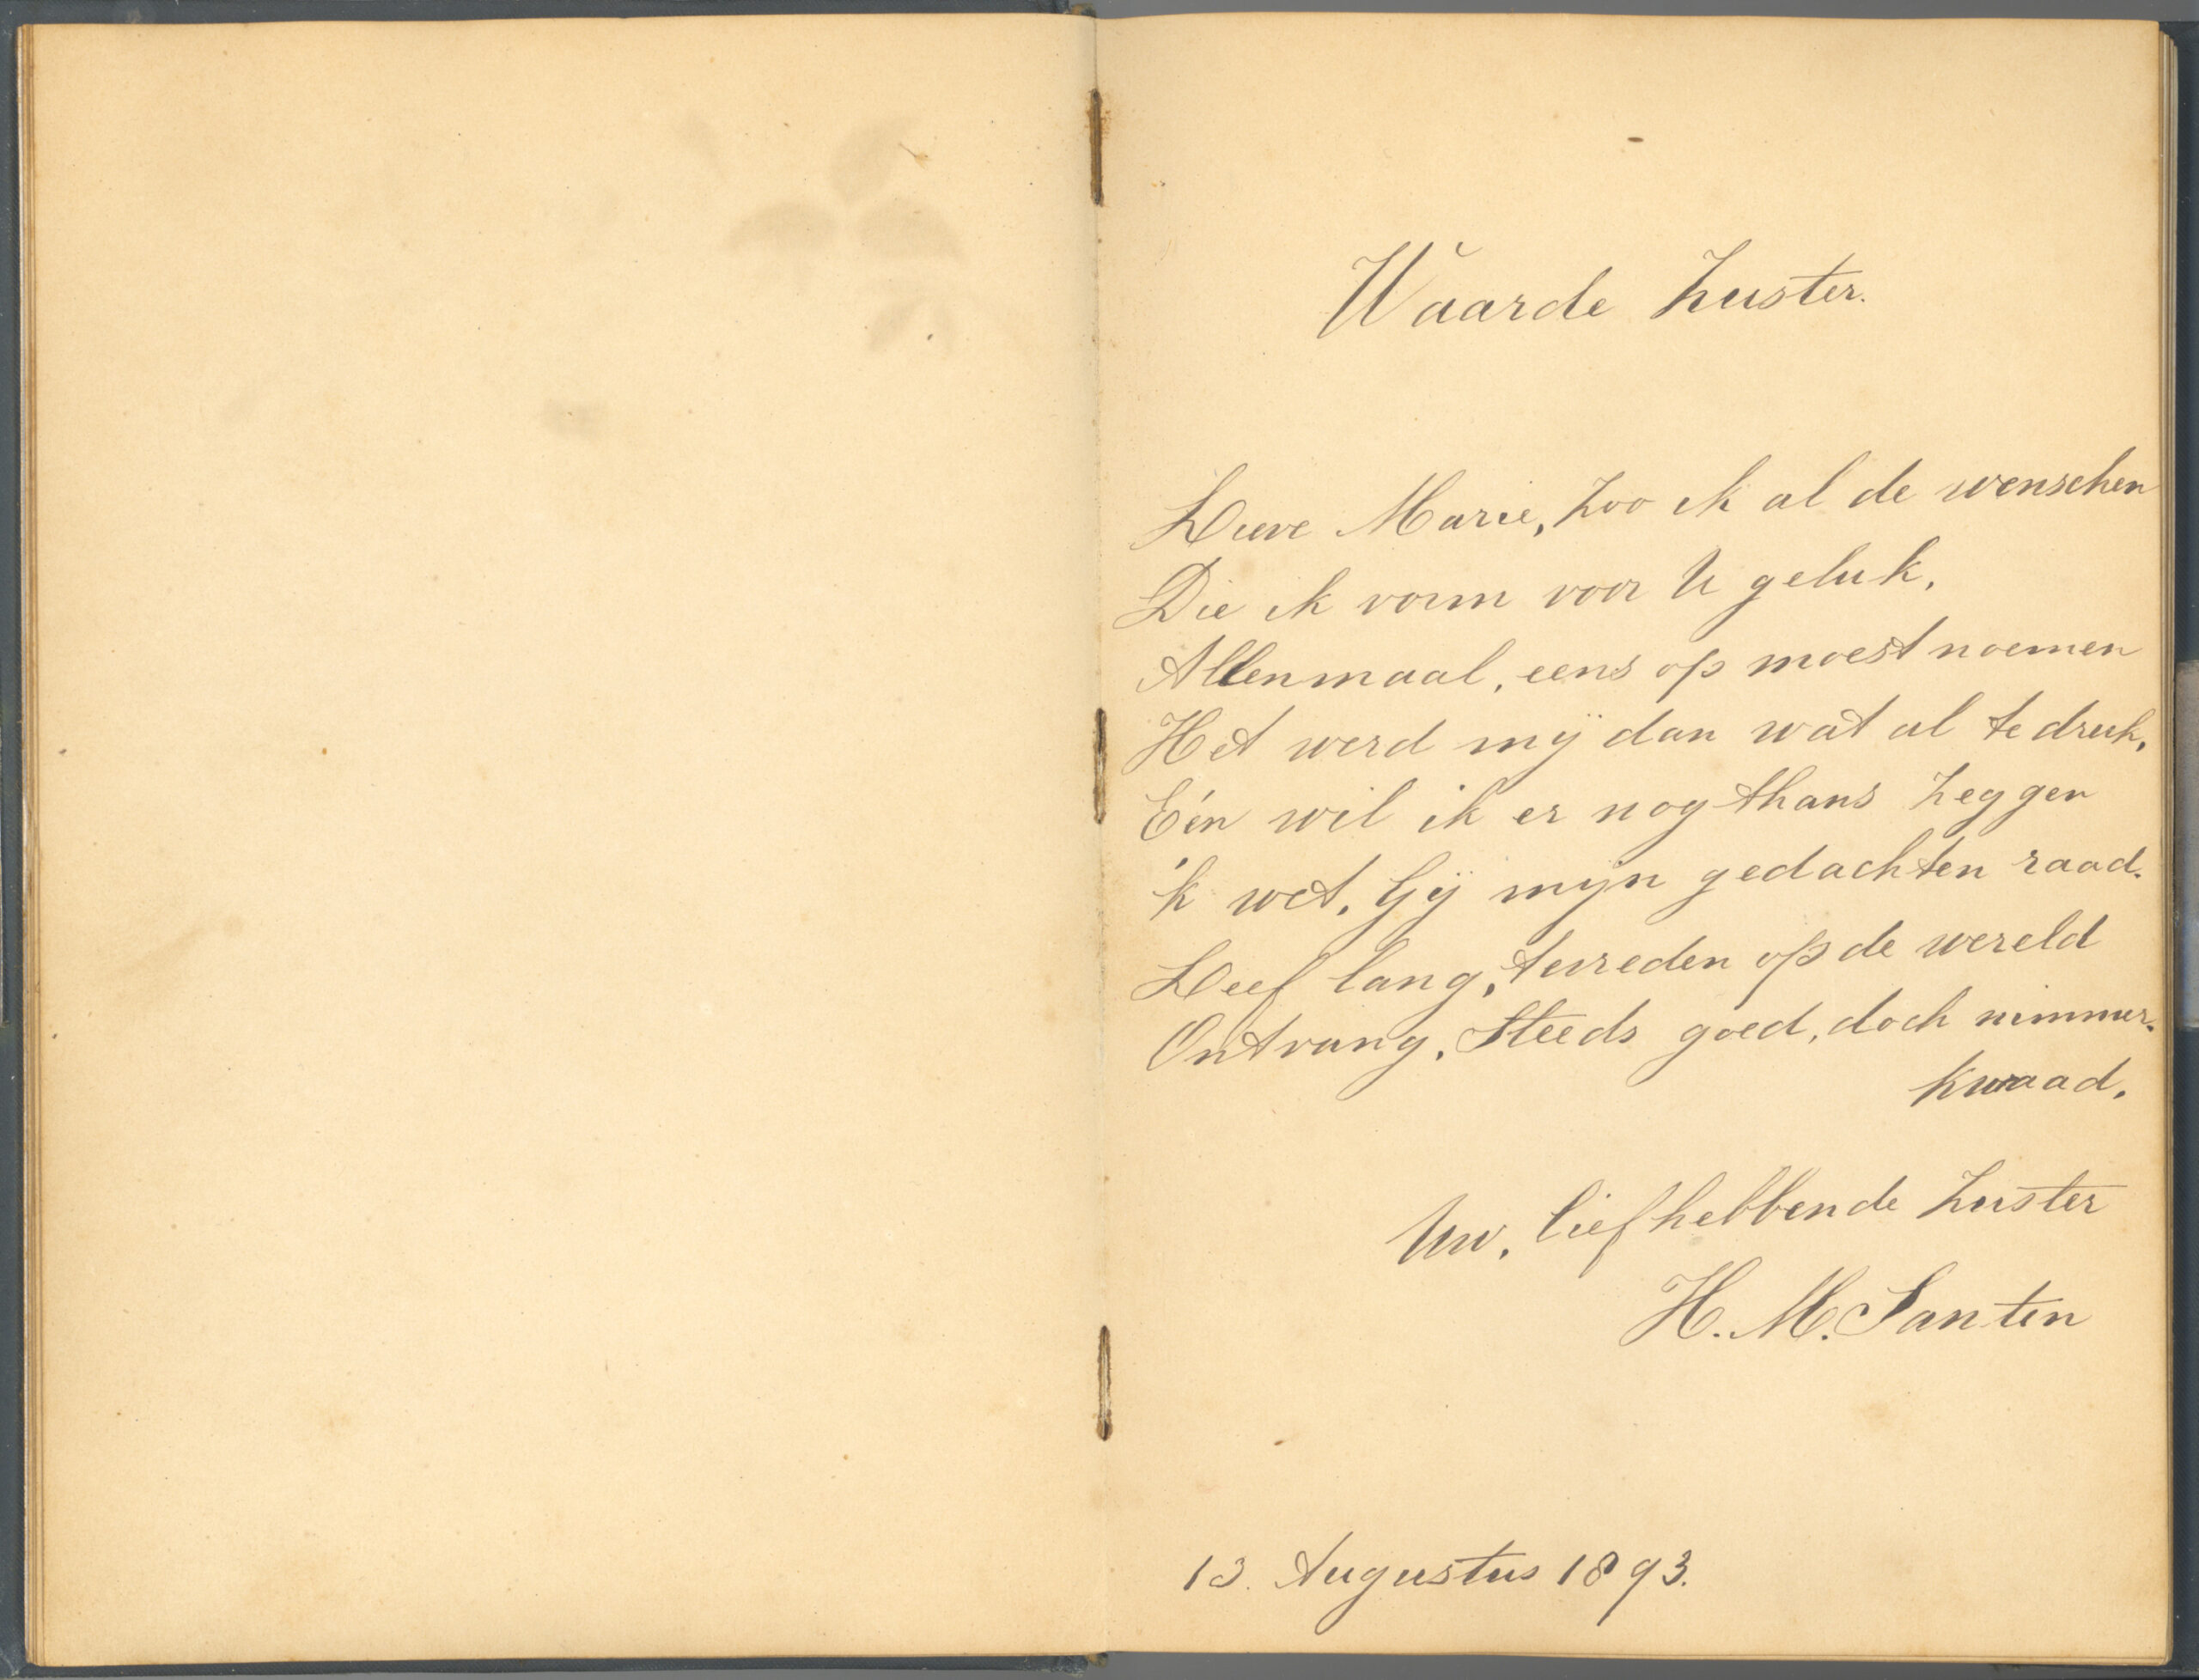 Waarde Zuster.
Lieve Marie, Zoo ik al de wenschen
Die ik vorm voor U geluk,
Allenmaal, eens op moest noemen
Het werd mij dan wat al te druk,
Eén wil ik er nogthans Zeggen
'k wet, Gij mijn gedachten raad.
Leef lang, tevreden op de wereld
Ontvang, Steeds goed, doch nimmer.
kwaad.
Uw, liefhebbende Zuster
H. M. Santen
13. Augustus 1893.